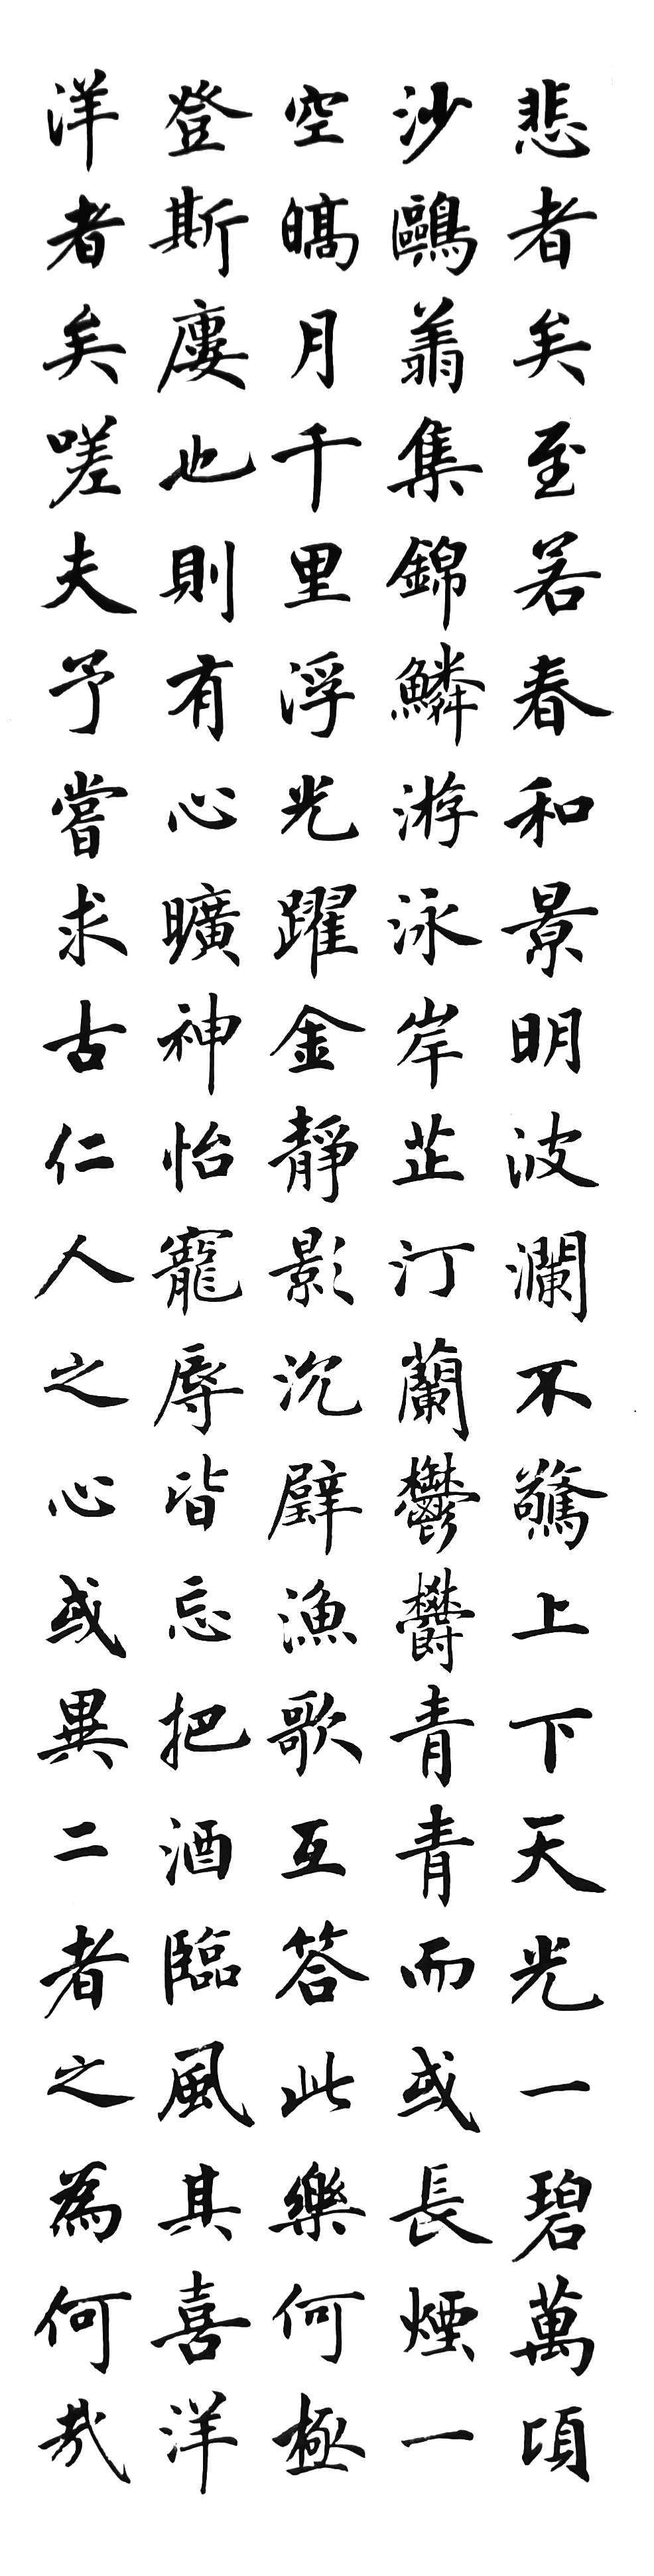 悲者矣至若春和景明波瀾不驚上下天光一碧萬頃
沙鷗翔集錦鱗游泳岸芷汀蘭鬱鬱青青而或長煙一
空皜月千里浮光躍金靜影沉璧漁歌互答此樂何極
登斯廔也則有心曠神怡寵辱皆忘把酒臨風其喜洋
洋者矣嗟夫予嘗求古仁人之心或異二者之為何哉